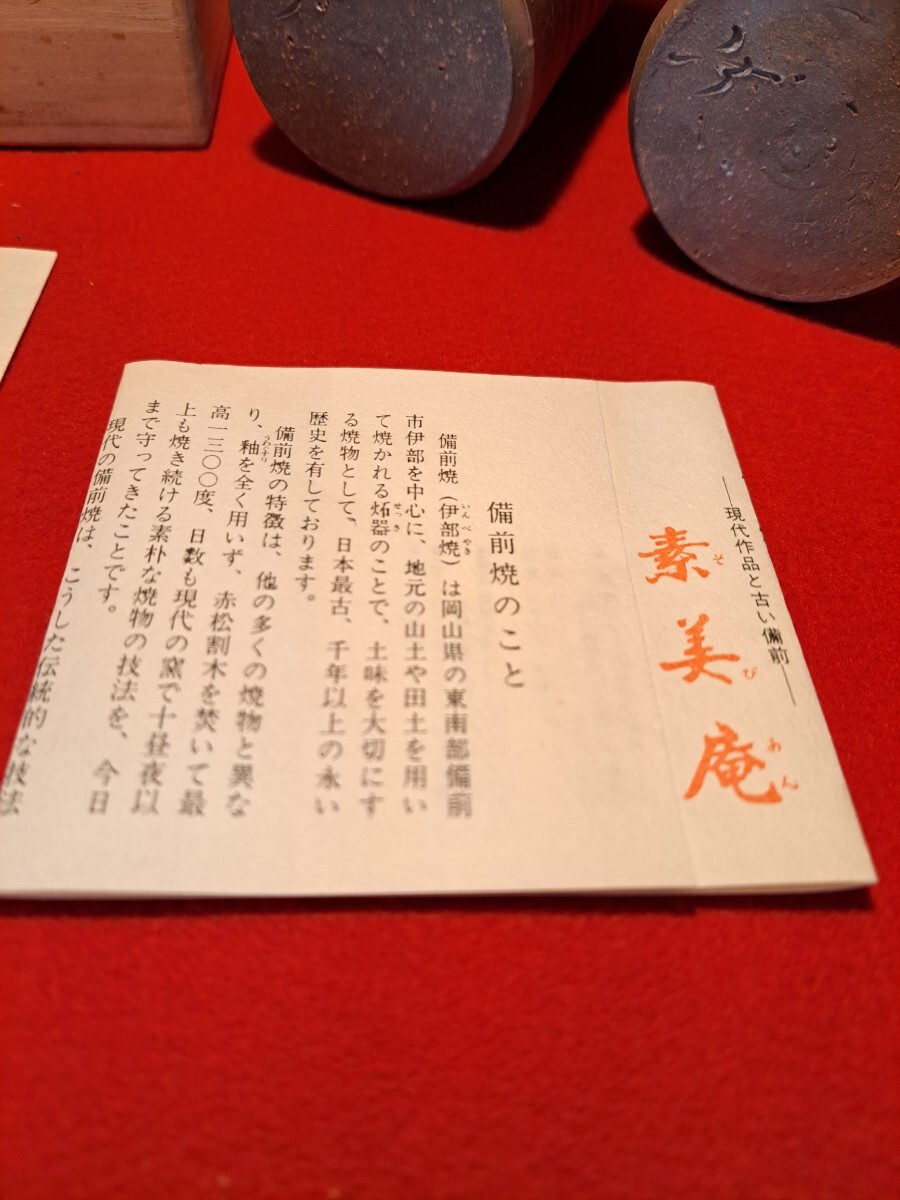 ―現代作品と古い備前―
素美庵
そびあん
備前焼のこと
備前焼（伊部焼）は岡山県の東南部備前
いんべやき
市伊部を中心に、地元の山土や田土を用い
て焼かれる炻器のことで、土味を大切にす
せっき
る焼物として、日本最古、千年以上の永い
歴史を有しております。
備前焼の特徴は、他の多くの焼物と異な
り、釉を全く用いず、赤松割木を焚いて最
うわぐすり
高一三〇〇度、日数も現代の窯で十昼夜以
上も焼き続ける素朴な焼物の技法を、今日
まで守ってきたことです。
現代の備前焼は、こうした伝統的な技法